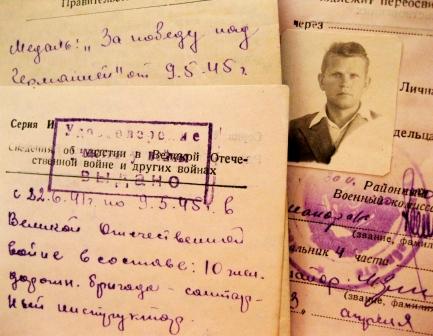 Правительств
Медаль: „За победу над
Германией" от 9.5.45 г.
Серия И
Удостоверение
ВЫДАНО
Сведения об участии в Великой Отече-
ственной войне и других войнах
с 22.6.41 г. по 9.5.45 г. в
Великой Отечественной
войне в составе: 10 жел.
дорожн. бригада - санитар-
ный инструктор.
лежит переосви
через
Лична
дельца
Районны
Военный комисса
(звание, фамили
альник 4 части
(звание, фамил
апреля